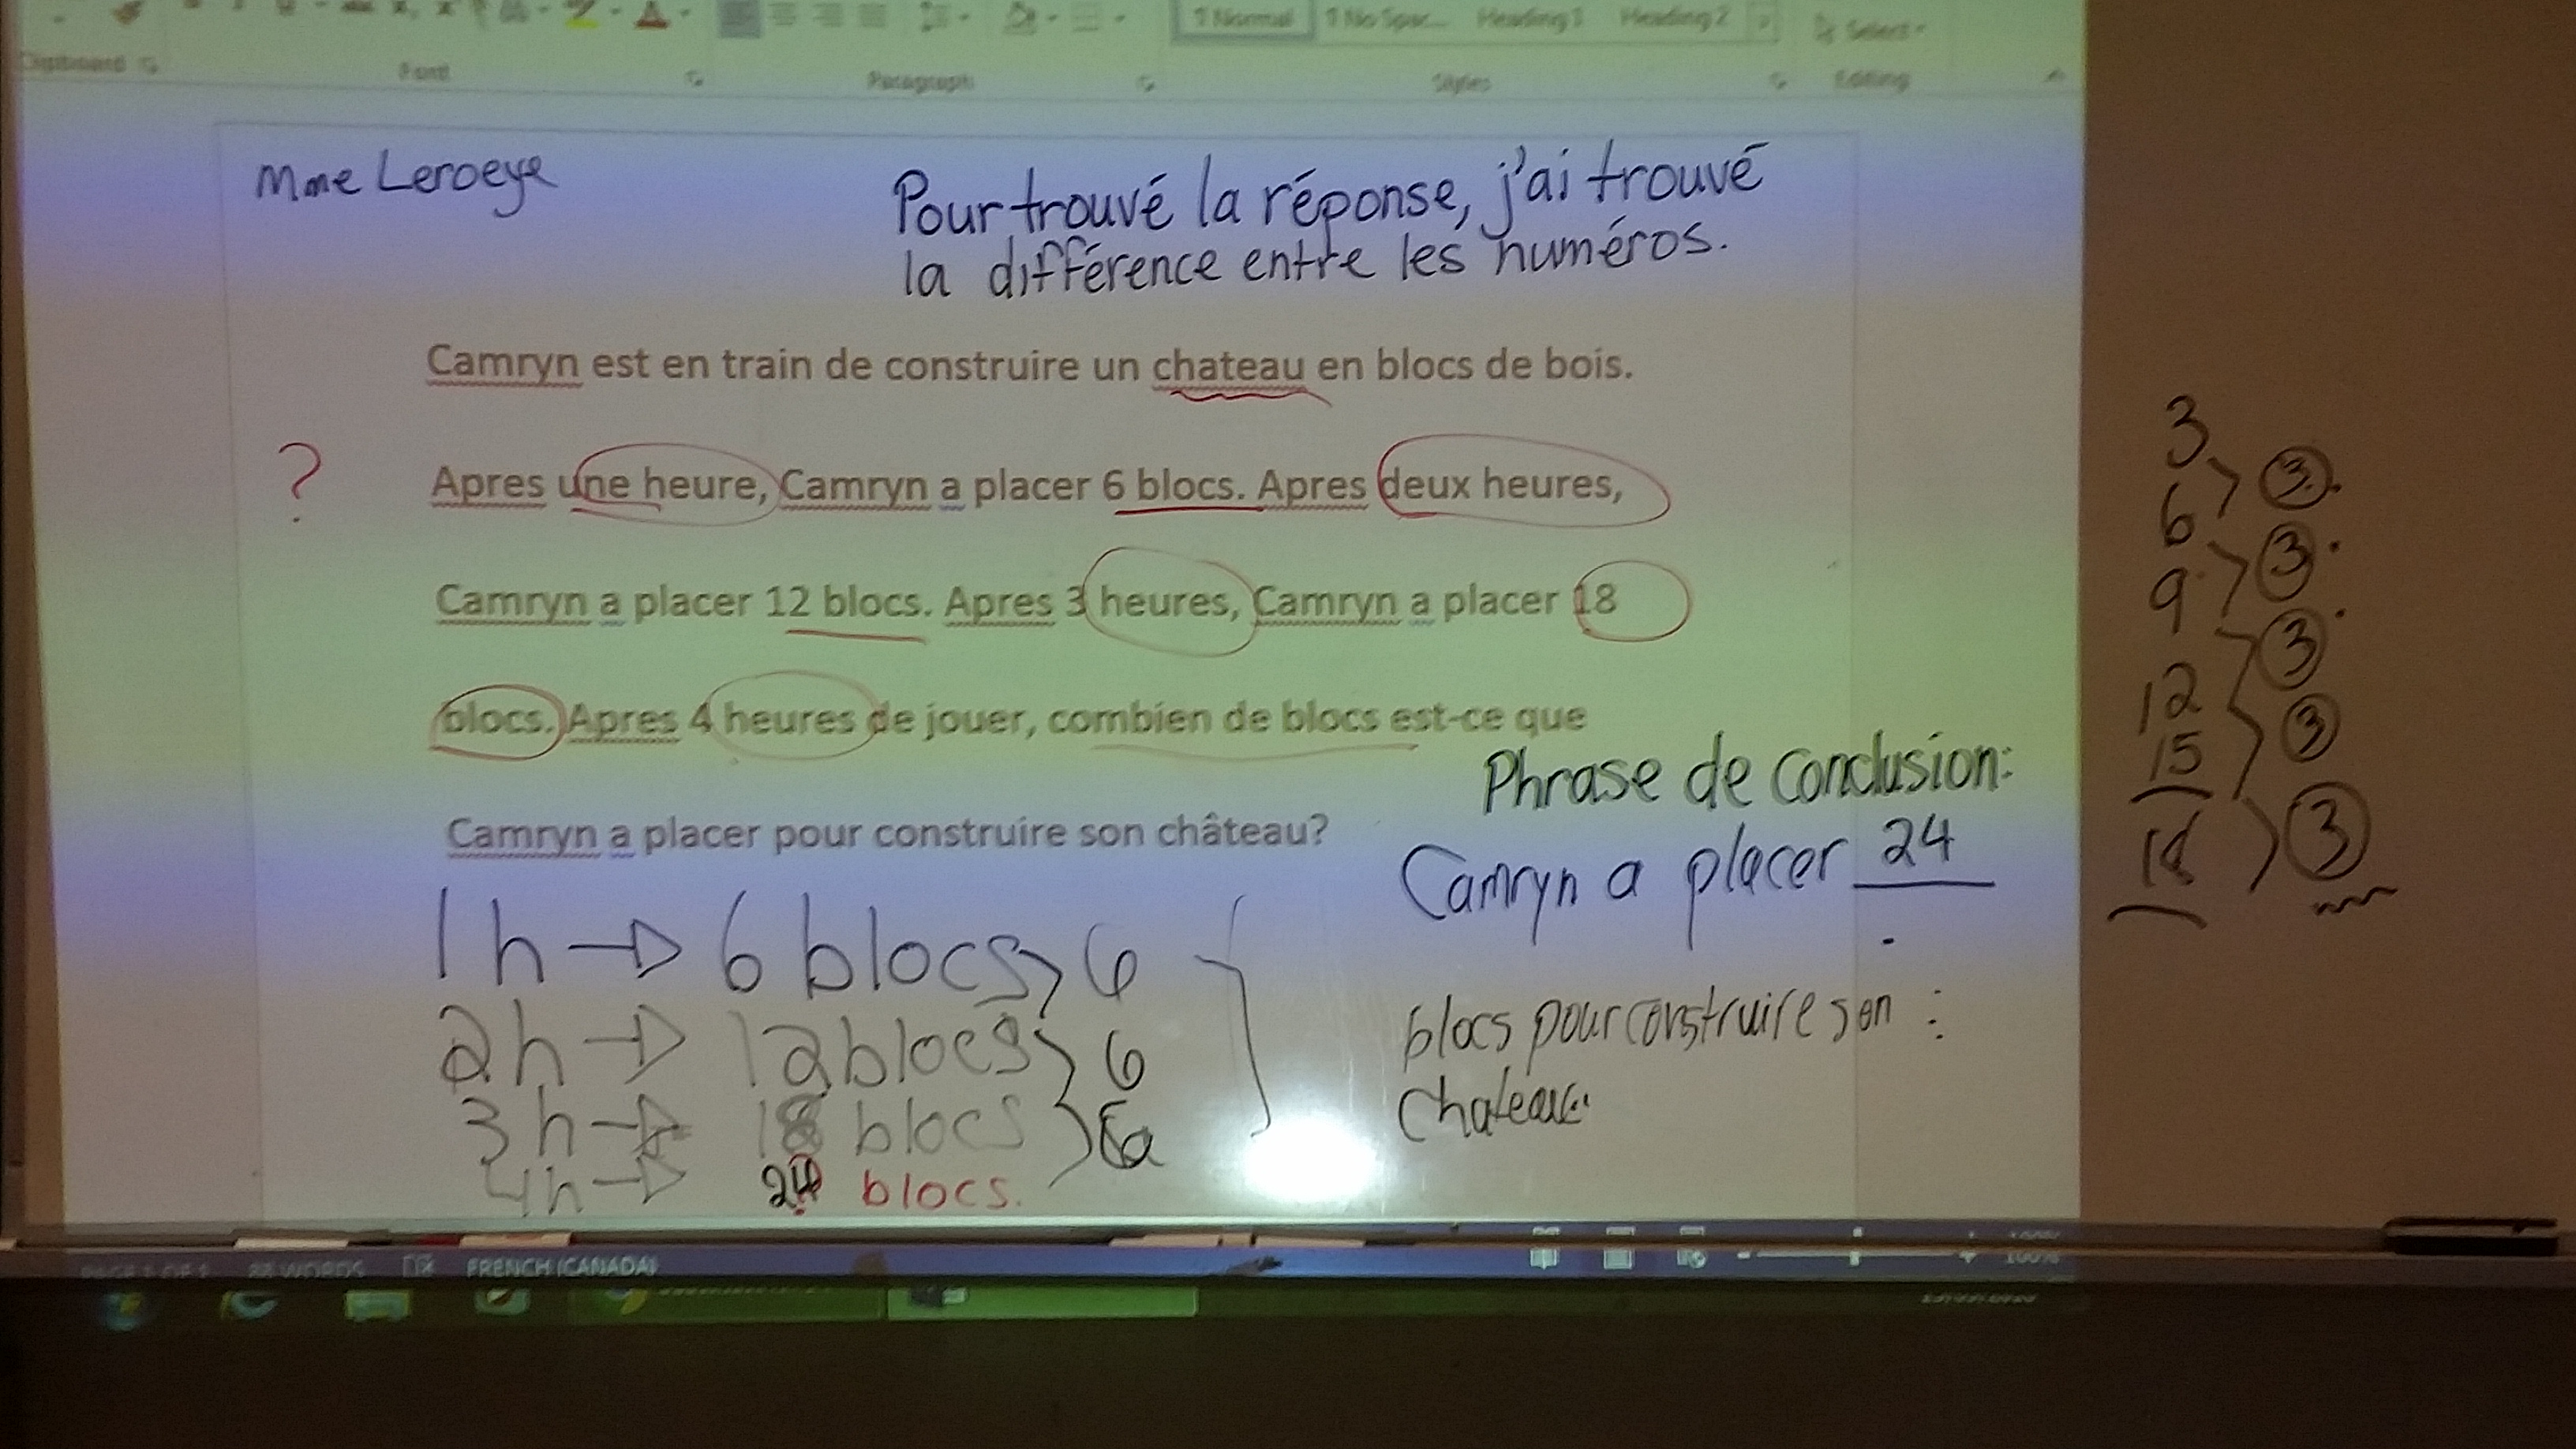 Normal
No Spac...
Heading 1
Heading 2
Select
Clipboard
Font
Paragraph
Styles
Editing
Mme Leroeye
Pour trouvé la réponse, j'ai trouvé
la différence entre les numéros.
Camryn est en train de construire un chateau en blocs de bois.
?
Apres une heure, Camryn a placer 6 blocs. Apres deux heures,
Camryn a placer 12 blocs. Apres 3 heures, Camryn a placer 18
blocs. Apres 4 heures de jouer, combien de blocs est-ce que
Camryn a placer pour construire son château?
Phrase de conclusion:
Camryn a placer 24
blocs pour construire son
chateau.
1h → 6 blocs > 6
2h → 12 blocs > 6
3h → 18 blocs > 6
4h → 24 blocs.
3
> 3
6
> 3
9
> 3
12
> 3
15
> 3
18
PAGE 1 OF 1
88 WORDS
FRENCH (CANADA)
100%